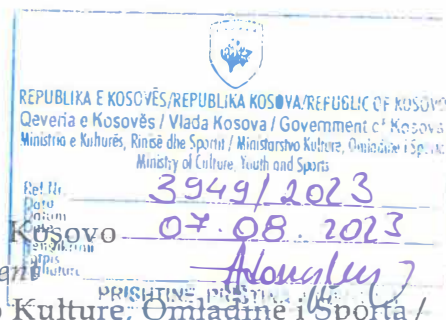 REPUBLIKA E KOSOVËS/REPUBLIKA KOSOVA/REPUBLIC OF KOSOVO
Qeveria e Kosovës / Vlada Kosova / Government of Kosova
Ministria e Kulturës, Rinisë dhe Sportit / Ministarstvo Kulture, Omladine i Sporta
Ministry of Culture, Youth and Sports
Ref. Nr. 3949/2023
Data
Datum
Kosovo 07.08.2023
PRISHTINË
o Kulture, Omladine i Sporta /